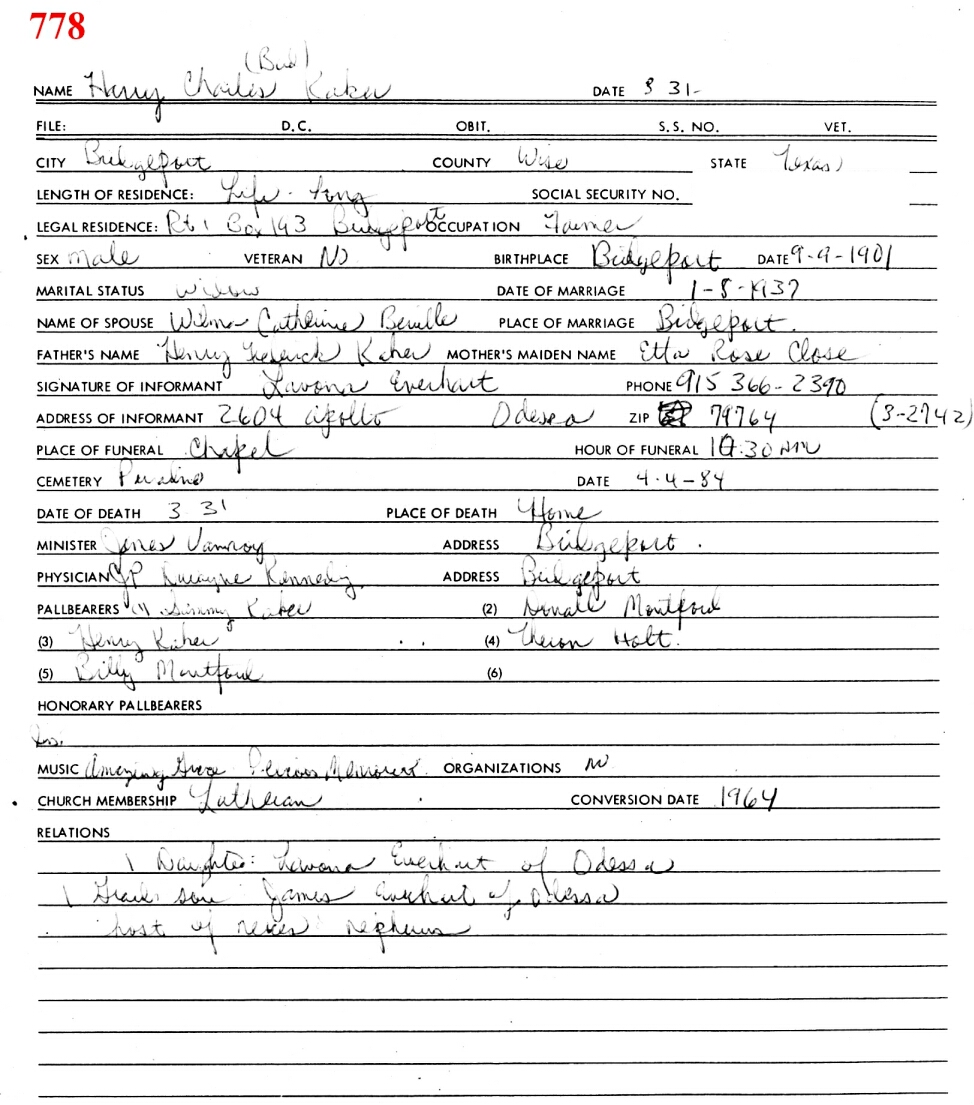 778
(Bud)
NAME Henry Charles Kaker DATE 3 31-
FILE: D.C. OBIT. S.S. NO. VET.
CITY Bridgeport COUNTY Wise STATE Texas
LENGTH OF RESIDENCE: Life - Long SOCIAL SECURITY NO.
LEGAL RESIDENCE: Rt 1 Box 193 Bridgeport OCCUPATION Farmer
SEX male VETERAN No BIRTHPLACE Bridgeport DATE 9-9-1901
MARITAL STATUS Widow DATE OF MARRIAGE 1-8-1937
NAME OF SPOUSE Wilma Catherine PLACE OF MARRIAGE Bridgeport.
FATHER'S NAME Henry Frederick Kaker MOTHER'S MAIDEN NAME Etta Rose Close
SIGNATURE OF INFORMANT Lavona Everhart PHONE 915 366-2390
ADDRESS OF INFORMANT 2604 Apollo Odessa ZIP 79764 (3-2742)
PLACE OF FUNERAL Chapel HOUR OF FUNERAL 10:30 AM
CEMETERY DATE 4-4-84
DATE OF DEATH 3 31 PLACE OF DEATH Home
MINISTER James Vanroy ADDRESS Bridgeport.
PHYSICIAN JP Dwayne Kennedy ADDRESS Bridgeport
PALLBEARERS (1) Jimmy Kaker (2) Donall Montford
(3) Henry Kaker (4) Theron Holt.
(5) Billy Montford (6)
HONORARY PALLBEARERS
Ins.
MUSIC Amazing Grace Precious Memories ORGANIZATIONS No
CHURCH MEMBERSHIP Lutheran CONVERSION DATE 1964
RELATIONS
1 Daughter: Lavona Everhart of Odessa
1 Grand son James Everhart of Odessa
host of neices nephews